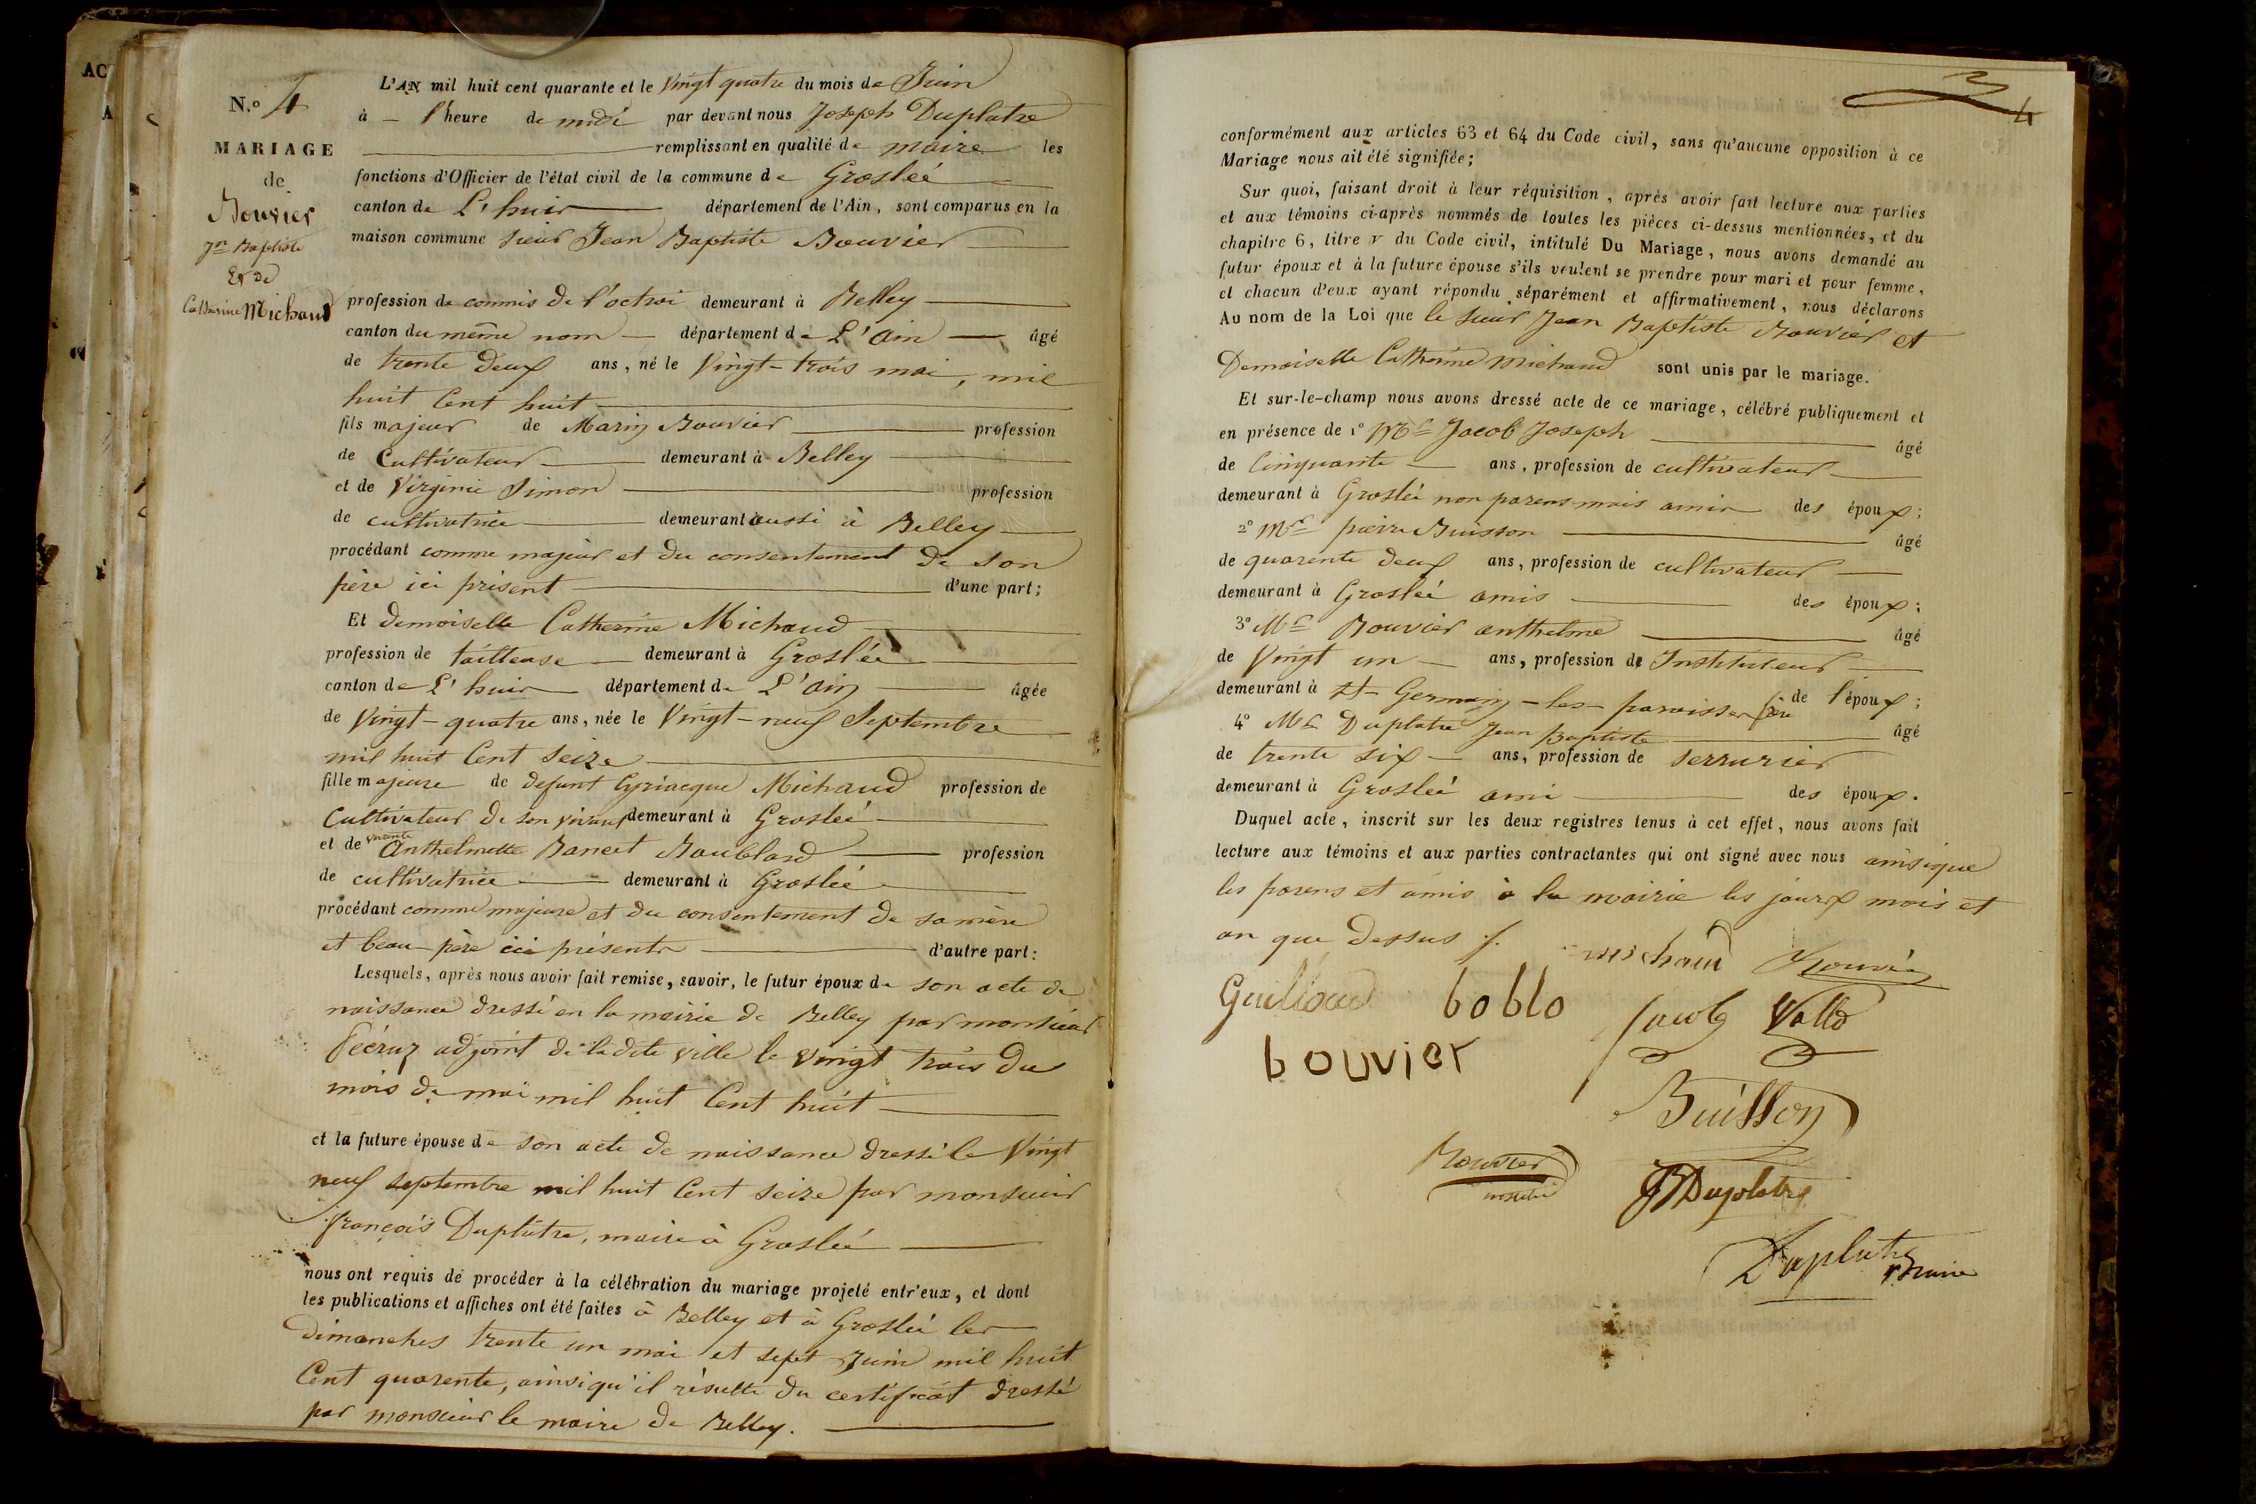 N.o 4
MARIAGE
de
Bouvier
Jn Baptiste
Et de
Catherine Michaud
L'AN mil huit cent quarante et le Vingt quatre du mois de Juin
à – l'heure de midi par devant nous Joseph Duplatre
remplissant en qualité de maire les
fonctions d'Officier de l'état civil de la commune de Groslée
canton de L'huis département de l'Ain, sont comparus en la
maison commune sieur Jean Baptiste Bouvier
profession de commis de l'octroi demeurant à Belley
canton du même nom – département de L'Ain – âgé
de trente deux ans, né le Vingt-trois mai, mil
huit Cent huit
fils majeur de Marin Bouvier profession
de Cultivateur demeurant à Belley
et de Virginie Simon profession
de cultivatrice demeurant aussi à Belley
procédant comme majeur et du consentement de son
père ici présent d'une part;
Et demoiselle Catherine Michaud
profession de tailleuse demeurant à Groslée
canton de L'huis département de L'Ain âgée
de Vingt-quatre ans, née le Vingt-neuf Septembre
mil huit Cent seize
fille majeure de defunt Cyriacque Michaud profession de
Cultivateur de son vivant demeurant à Groslée
et de vivante Anthelmette Bancet Boublard profession
de cultivatrice demeurant à Groslée
procédant comme majeure et du consentement de sa mère
et beau-père ici présents d'autre part:
Lesquels, après nous avoir fait remise, savoir, le futur époux de son acte de
naissance dressé en la mairie de Belley par monsieur
Fécruz adjoint de la dite ville le vingt trois du
mois de mai mil huit Cent huit
et la future épouse de son acte de naissance dressé le Vingt
neuf septembre mil huit Cent seize par monsieur
françois Duplâtre, maire à Groslée
nous ont requis de procéder à la célébration du mariage projeté entr'eux, et dont
les publications et affiches ont été faites à Belley et à Groslée les
dimanches trente un mai et sept Juin mil huit
Cent quarente, ainsi qu'il résulte du certificat dressé
par monsieur le maire de Belley.
4
conformément aux articles 63 et 64 du Code civil, sans qu'aucune opposition à ce
Mariage nous ait été signifiée;
Sur quoi, faisant droit à leur réquisition, après avoir fait lecture aux parties
et aux témoins ci-après nommés de toutes les pièces ci-dessus mentionnées, et du
chapitre 6, titre v du Code civil, intitulé Du Mariage, nous avons demandé au
futur époux et à la future épouse s'ils veulent se prendre pour mari et pour femme,
et chacun d'eux ayant répondu séparément et affirmativement, nous déclarons
Au nom de la Loi que le sieur Jean Baptiste Bouvier et
Demoiselle Catherine Michaud sont unis par le mariage.
Et sur-le-champ nous avons dressé acte de ce mariage, célébré publiquement et
en présence de 1o Mr Jacob Joseph âgé
de Cinquante ans, profession de cultivateur
demeurant à Groslée non parens mais amis des époux;
2o Mr pierre Buisson âgé
de quarente deux ans, profession de cultivateur
demeurant à Groslée amis des époux;
3o Mr Bouvier anthelme âgé
de Vingt un ans, profession de Instituteur
demeurant à St Germain-les-paroisses frère de l'époux;
4o Mr Duplatre Jean Baptiste âgé
de trente six ans, profession de serrurier
demeurant à Groslée ami des époux.
Duquel acte, inscrit sur les deux registres tenus à cet effet, nous avons fait
lecture aux témoins et aux parties contractantes qui ont signé avec nous ainsi que
les parens et amis à la mairie les jours mois et
an que dessus
michaud Bouvier
Guillaud boblo Jacob
bouvier
Buisson
Bouvier
JB Duplatre
Duplatre
maire